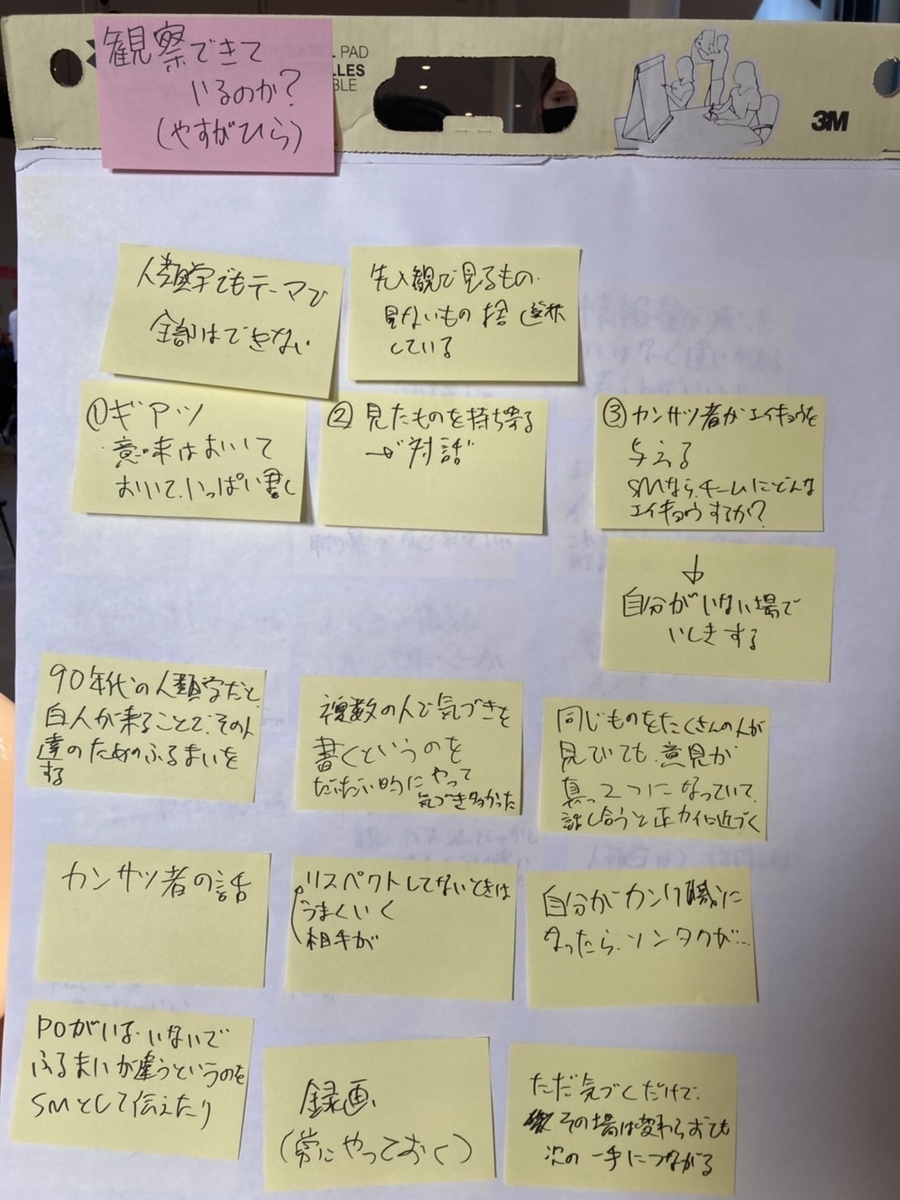 観察できて
いるのか?
(やすがひら)
PAD
LLES
BLE
3M
人類学でもテーマで
全部はできない
先入観で見るもの・
見ないもの 捨 選択
している
①ギアツ
意味はおいて
おいて、いっぱい書く
② 見たものを持ち寄る
→対話
③カンサツ者がエイキョウを
与える
SMなら、チームにどんな
エイキョウするか?
↓
自分がいない場で
いしきする
90年代の人類学だと、
白人が来ることで、その人
達のためのふるまいを
する
複数の人で気づきを
書くというのを
だいたい的にやって
気づき多かった
同じものをたくさんの人が
見ていても、意見が
真っ2つになっていて、
話し合うと正カイに近づく
カンサツ者の話
リスペクトしてないときは
うまくいく
相手が
自分がカンリ職に
なったら、ソンタクが…
POがいる・いないで
ふるまいが違うというのを
SMとして伝えたり
録画、
(常にやっておく)
ただ気づくだけで、
その場は変わらずても
次の一手につながる